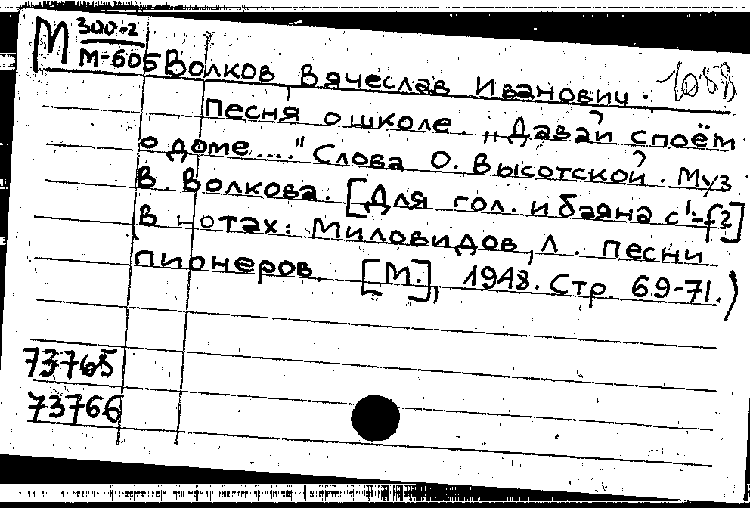 М 300-2
М-605
Волков, Вячеслав Иванович. 1088
Песня о школе. „Давай споём
о доме...." Слова О. Высотской. Муз.
В. Волкова. [Для гол. и баяна с¹-f²]
(В нотах: Миловидов, Л. Песни
пионеров. [М.], 1948. Стр. 69-71.)
73765
73766